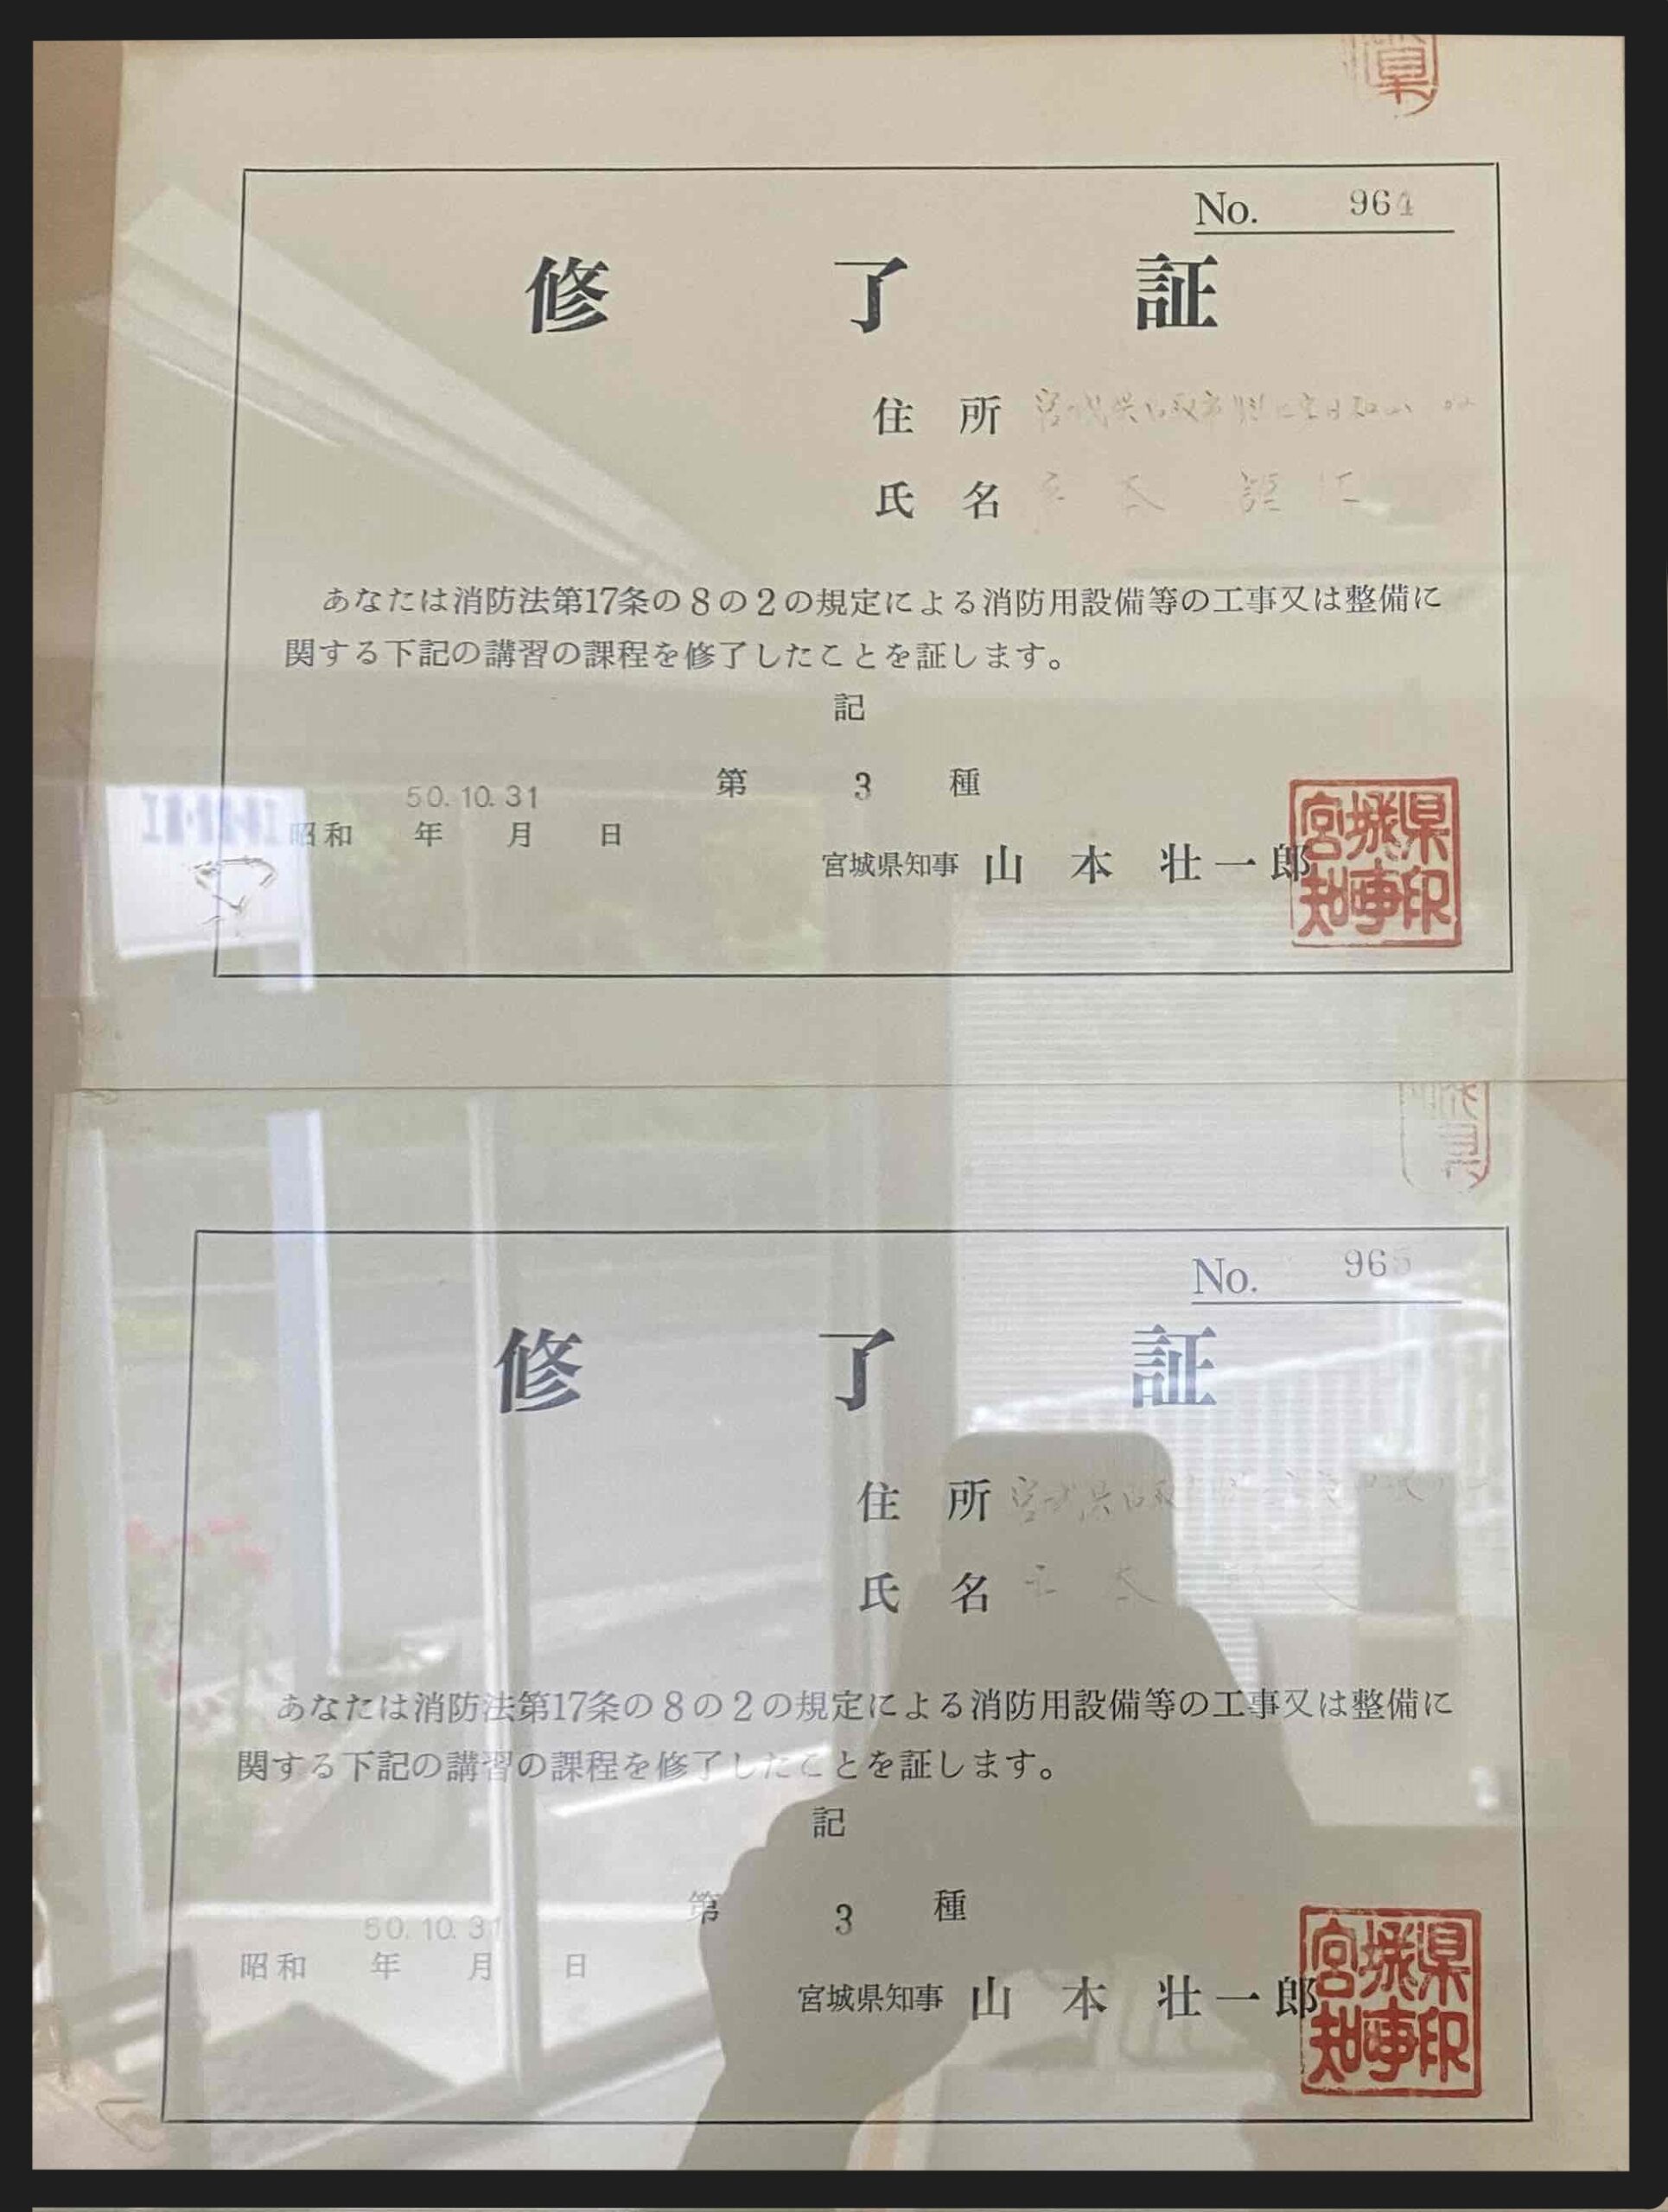 No. 964
修了証
住所
氏名
あなたは消防法第17条の8の2の規定による消防用設備等の工事又は整備に
関する下記の講習の課程を修了したことを証します。
記
第 3 種
50.10.31
昭和 年 月 日
宮城県知事 山本壮一郎
宮城県知事印
No. 965
修了証
住所
氏名
あなたは消防法第17条の8の2の規定による消防用設備等の工事又は整備に
関する下記の講習の課程を修了したことを証します。
記
第 3 種
50.10.31
昭和 年 月 日
宮城県知事 山本壮一郎
宮城県知事印